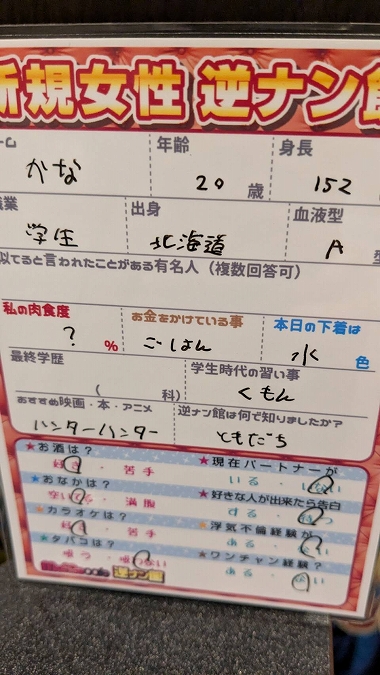 新規女性 逆ナン館
ーム 年齢 身長
かな 20 歳 152
職業 出身 血液型
学生 北海道 A 型
似てると言われたことがある有名人（複数回答可）
私の肉食度 お金をかけている事 本日の下着は
? % ごはん 水 色
最終学歴 学生時代の習い事
( 科) くもん
おすすめ映画・本・アニメ 逆ナン館は何で知りましたか?
ハンターハンター ともだち
★お酒は? ★現在パートナーが
好き・苦手 いる・いない
★おなかは? ★好きな人が出来たら告白
空いてる・満腹 する・
★カラオケは? ★浮気不倫経験が
好き・苦手 ある・ない
★タバコは? ★ワンチャン経験?
吸う・吸わない ある・ない
逆ナン館